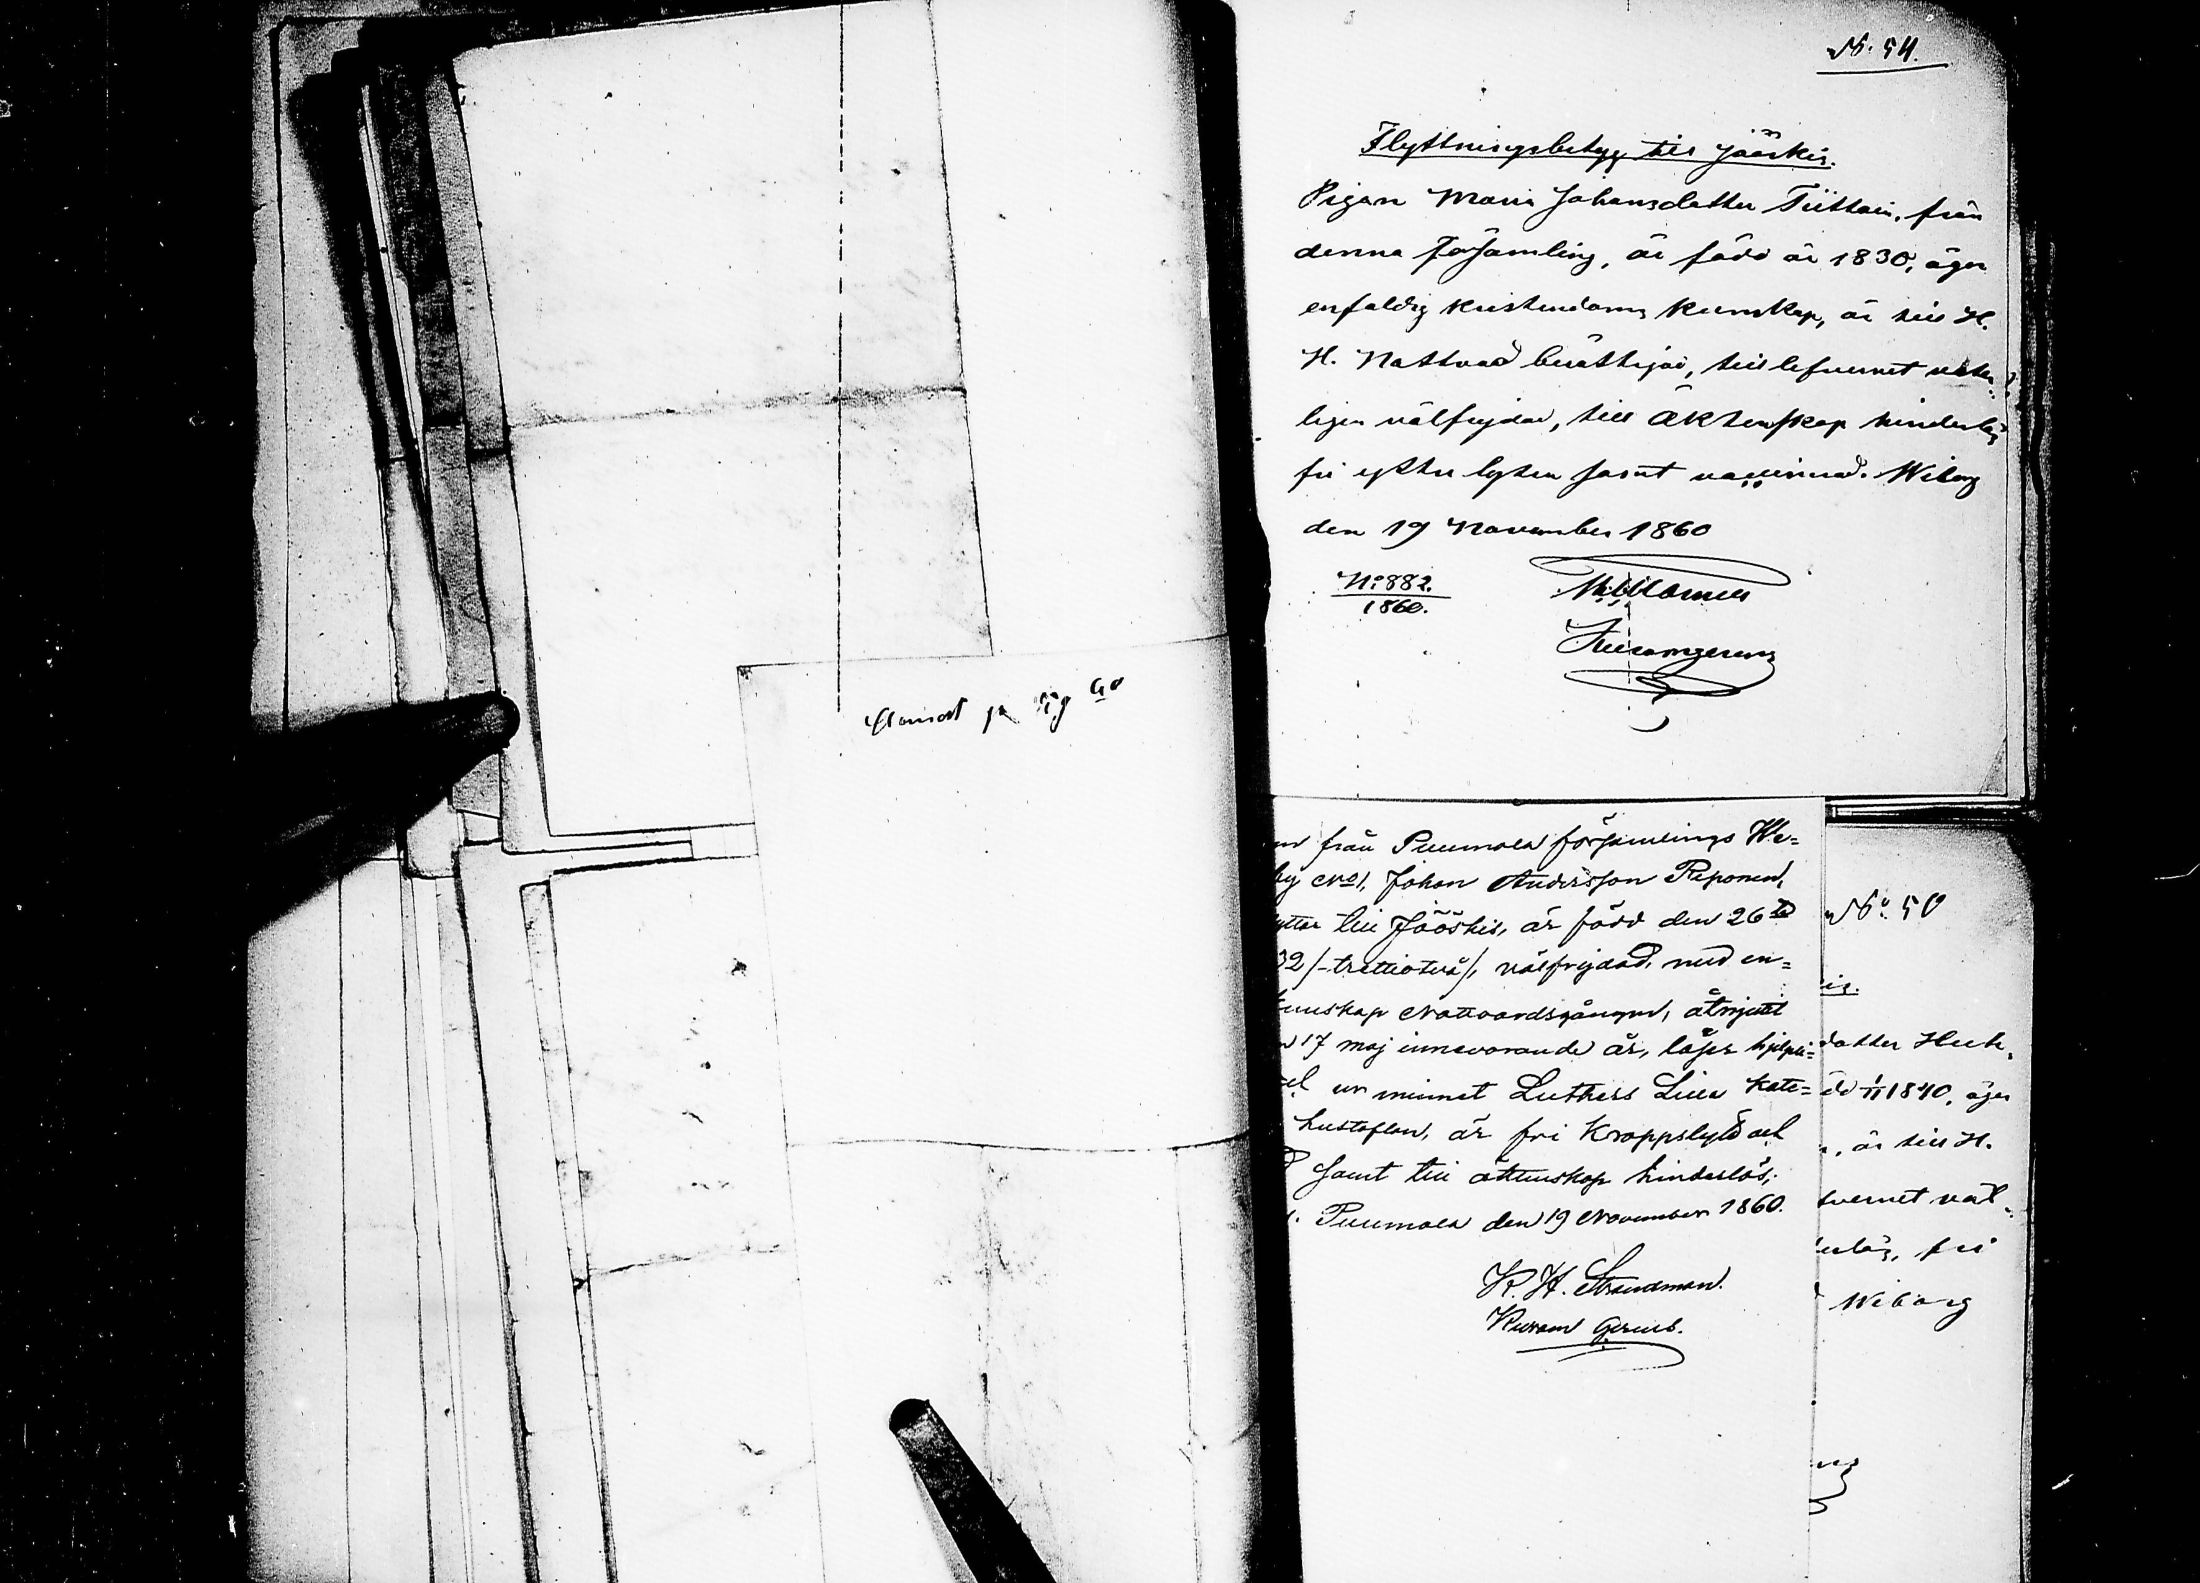 No. 54.
Flyttningsbetyg till Jääskis.
Pigan Maria Johansdotter Tiittain, från
denna församling, är född år 1830, äger
enfaldig kristendoms kunskap, är till H.
H. Nattvard berättigad, till lefvernet veter-
ligen välfrejdad, till äktenskap hinderlös,
fri yttre lyten samt vaccinerad. Wiborg
den 19 November 1860
No 882.
1860.
från Puumala församlings We-
by No 1, Johan Andersson Reponen,
yttar till Jääskis, är född den 26te
32/-trettiotvå/, välfrejdad, med en-
kunskap Nattvardsgången, åtnjutit
17 maj innevarande år, läser hjelpli-
ur minnet Luthers Lilla Kate-
hustaflan, är fri kroppslyte och
samt till äktenskap hinderlös;
Puumala den 19 November 1860.
K. H. Strandman.
No. 50
is.
dotter Huh.
1840, äger
, är till H.
fvernet väl-
derlös, fri
Wiborg